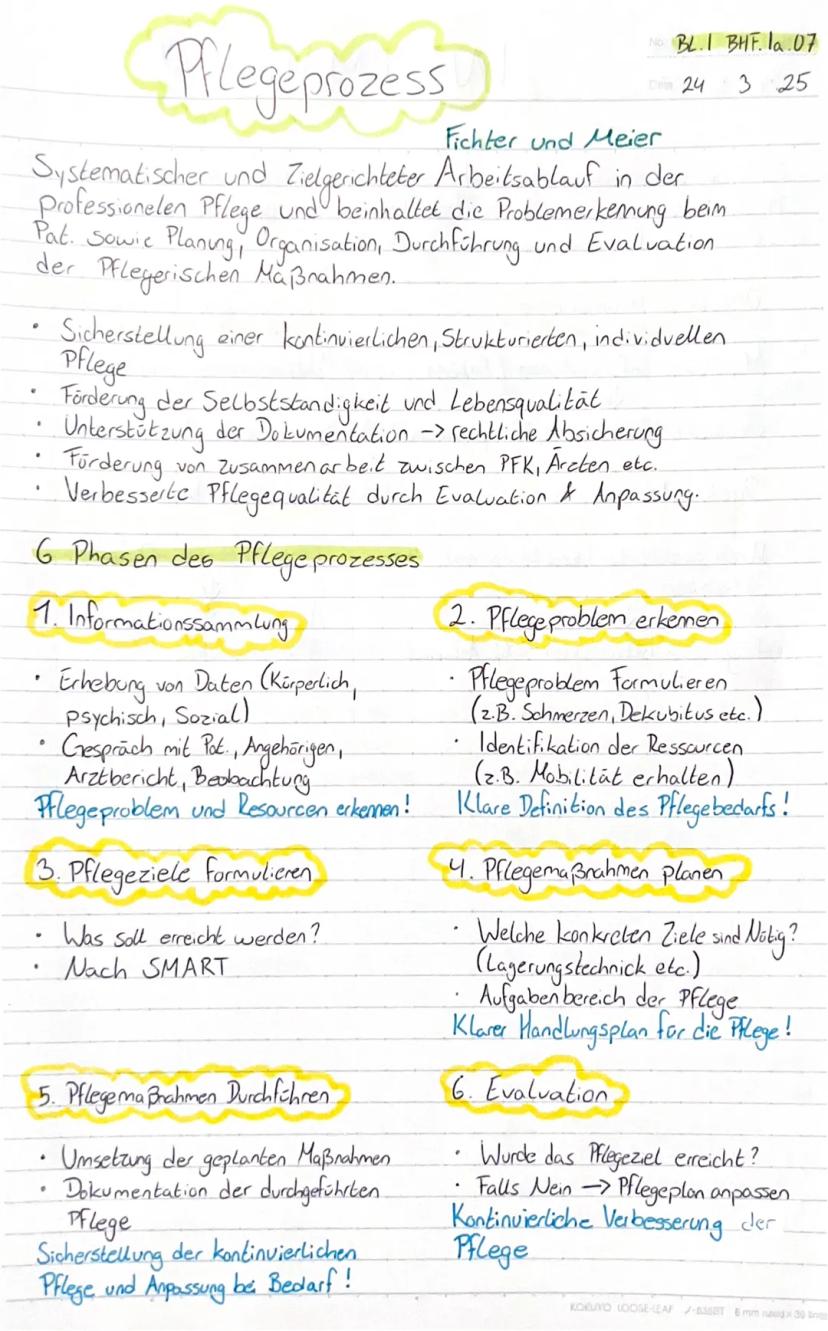 Pflegeprozess
No. BL.1 BHF.1a.07
Date 24 3 25
Fichter und Meier
Systematischer und Zielgerichteter Arbeitsablauf in der
professionelen Pflege und beinhaltet die Problemerkennung beim
Pat. sowie Planung, Organisation, Durchführung und Evaluation
der Pflegerischen Maßnahmen.
• Sicherstellung einer kontinuierlichen, Strukturierten, individuellen
Pflege
• Förderung der Selbstständigkeit und Lebensqualität
• Unterstützung der Dokumentation -> rechtliche Absicherung
• Förderung von zusammenarbeit zwischen PFK, Ärzten etc.
• Verbesserte Pflegequalität durch Evaluation & Anpassung.
6 Phasen des Pflegeprozesses
1. Informationssammlung
• Erhebung von Daten (Körperlich,
psychisch, Sozial)
• Gespräch mit Pat., Angehörigen,
Arztbericht, Beobachtung
Pflegeproblem und Resourcen erkennen!
2. Pflegeproblem erkennen
• Pflegeproblem Formulieren
(z.B. Schmerzen, Dekubitus etc.)
• Identifikation der Ressourcen
(z.B. Mobilität erhalten)
Klare Definition des Pflegebedarfs!
3. Pflegeziele formulieren
• Was soll erreicht werden?
• Nach SMART
4. Pflegemaßnahmen planen
• Welche konkreten Ziele sind Nötig?
(Lagerungstechnick etc.)
• Aufgabenbereich der Pflege
Klarer Handlungsplan für die Pflege!
5. Pflegemaßnahmen Durchführen
• Umsetzung der geplanten Maßnahmen
• Dokumentation der durchgeführten
Pflege
Sicherstellung der kontinuierlichen
Pflege und Anpassung bei Bedarf!
6. Evaluation
• Wurde das Pflegeziel erreicht?
• Falls Nein -> Pflegeplan anpassen
Kontinuierliche Verbesserung der
Pflege
KOKUYO LOOSE-LEAF 6 mm ruled × 39 lines